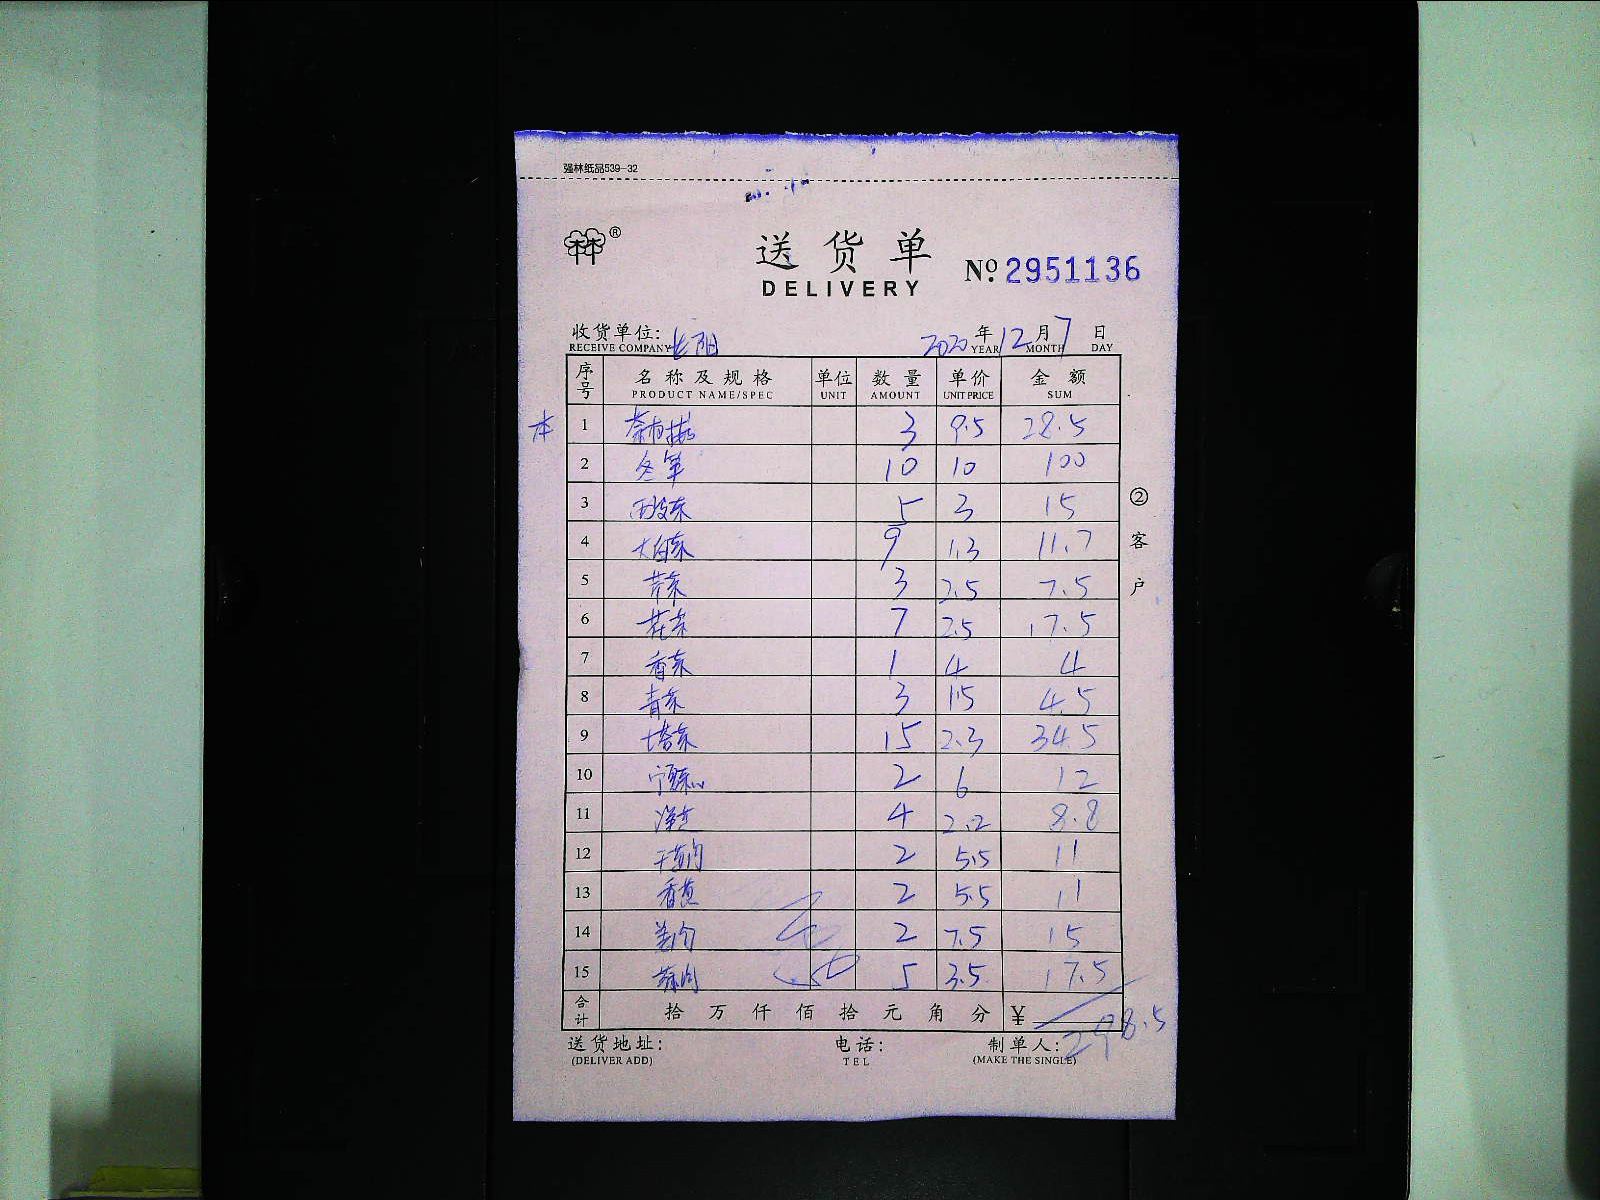 强林纸品539-32
林林®
送货单 №2951136
DELIVERY
收货单位: 长阳 2020年12月7日
RECEIVE COMPANY YEAR MONTH DAY
序号 名称及规格 单位 数量 单价 金额
PRODUCT NAME/SPEC UNIT AMOUNT UNIT PRICE SUM
本 1 3 9.5 28.5
2 冬笋 10 10 100
3 5 3 15
4 大白菜 9 1.3 11.7
5 芹菜 3 2.5 7.5
6 花菜 7 2.5 17.5
7 香菜 1 4 4
8 青菜 3 1.5 4.5
9 塔菜 15 2.3 34.5
10 2 6 12
11 4 2.2 8.8
12 2 5.5 11
13 2 5.5 11
14 2 7.5 15
15 5 3.5 17.5
② 客户
合计 拾万仟佰拾元角分 ¥ 298.5
送货地址: 电话: 制单人:
(DELIVER ADD) TEL (MAKE THE SINGLE)